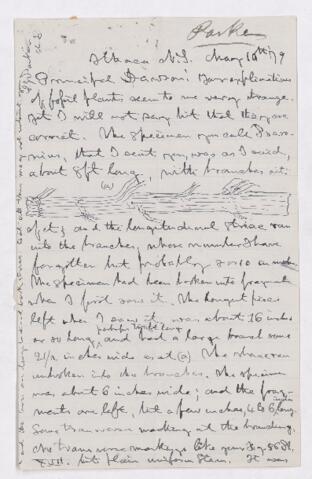 Parker
Ithaca N.Y. May 10th '79
Principal Dawson: Your explanations
of fossil plants seem to me very strange.
Yet I will not say but that they are
correct. The specimen you call Psaro-
nius, that I sent you, was as I said,
about 8ft long, with branches at
(a)
of it; and the longitudinal striae ran
into the branches, whose number I have
forgotten but probably 8 or 10 or more
The specimen had been broken into fragments
when I first saw it. The longest piece
left when I saw it, was about 16 inches
or so long, perhaps and had a large branch some
2½ inches wide as at (a). The striae ran
unbroken into the branches. The specimen
was about 6 inches wide; and the frag-
ments are left, but a few inches, 4 to 6 long.
Some transverse marking at the branching.
No transverse markings like your Fig.
but plain uniform stem. It was